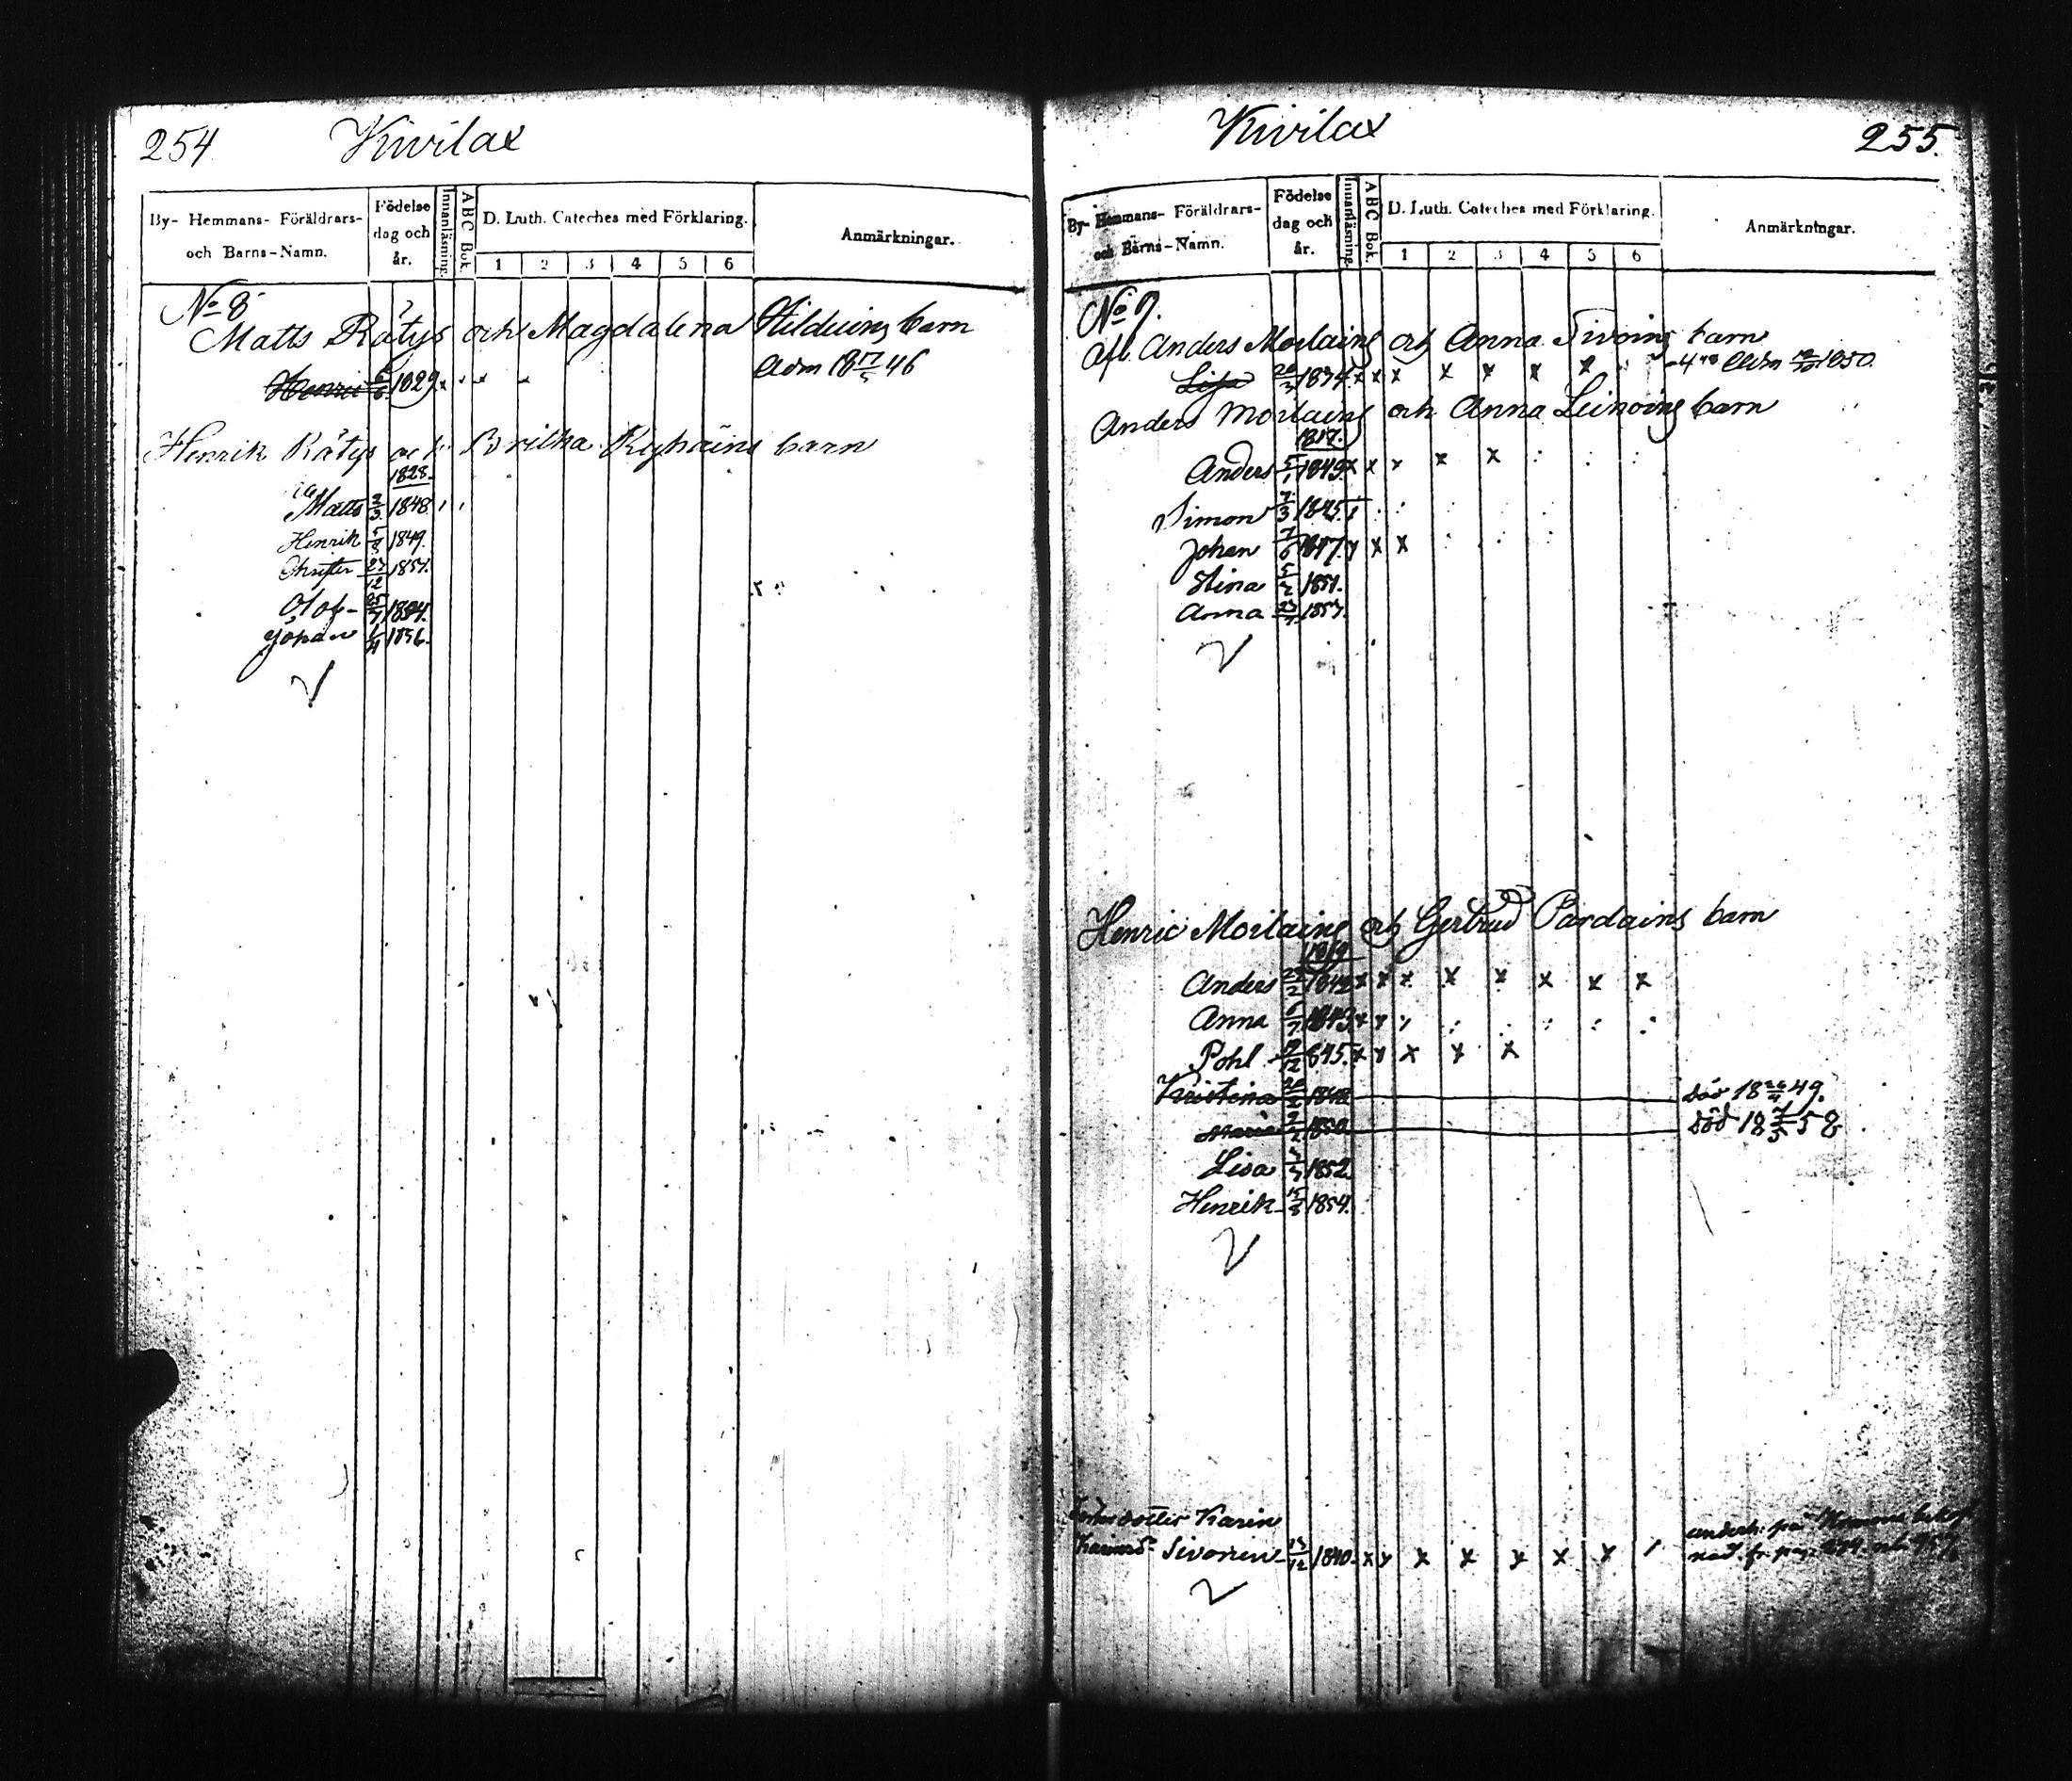 254 Kivilax
By- Hemmans- Föräldrars- och Barns-Namn. Födelse dag och år. Innanläsning. ABC Bok. D. Luth. Cateches med Förklaring. Anmärkningar.
1 2 3 4 5 6
No 8
Matts Rätys och Magdalena Hilduins barn
Henric 1829 Adm 18 17/5 46
Henrik Rätys och Britha Ryhäins barn
1828.
Matts 2/3 1848.
Henrik 5/8 1849.
Christer 27/12 1851.
Olof 25/7 1854.
Johan 6/4 1856.
Kivilax 255.
By- Hemmans- Föräldrars- och Barns-Namn. Födelse dag och år. Innanläsning. ABC Bok. D. Luth. Cateches med Förklaring. Anmärkningar.
1 2 3 4 5 6
No 9.
Afl. Anders Moilains och Anna Sivoins barn
Lisa 1834 x x x x x x x 1850.
Anders Moilains och Anna Leinoins barn
1817.
Anders 5/1 1843 x x x x x
Simon 7/3 1845.
Johan 7/6 1847. x x x
Stina 5/2 1851.
Anna 1853.
Henric Moilains och Gertrud Pardains barn
1819
Anders 1842 x x x x x x x x
Anna 6/7 1843 x
Pohl 845. x x x x x
Kristina 1848 död 18 26/4 49.
Maria 9/2 1850. död 18 58
Lisa 1852.
Henrik 15/8 1854.
Karin
Sivonen 13/12 1840. x x x x x x x